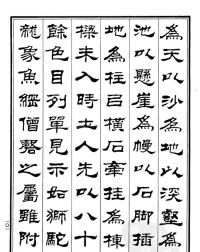 為天以沙為地以深壑為
池以懸崖為幔以石脚插
地為柱㠯橫石牽挂為棟
樑未入時土人先以八十
餘色目列單見示如獅駝
龍象魚網僧磬之屬雖附